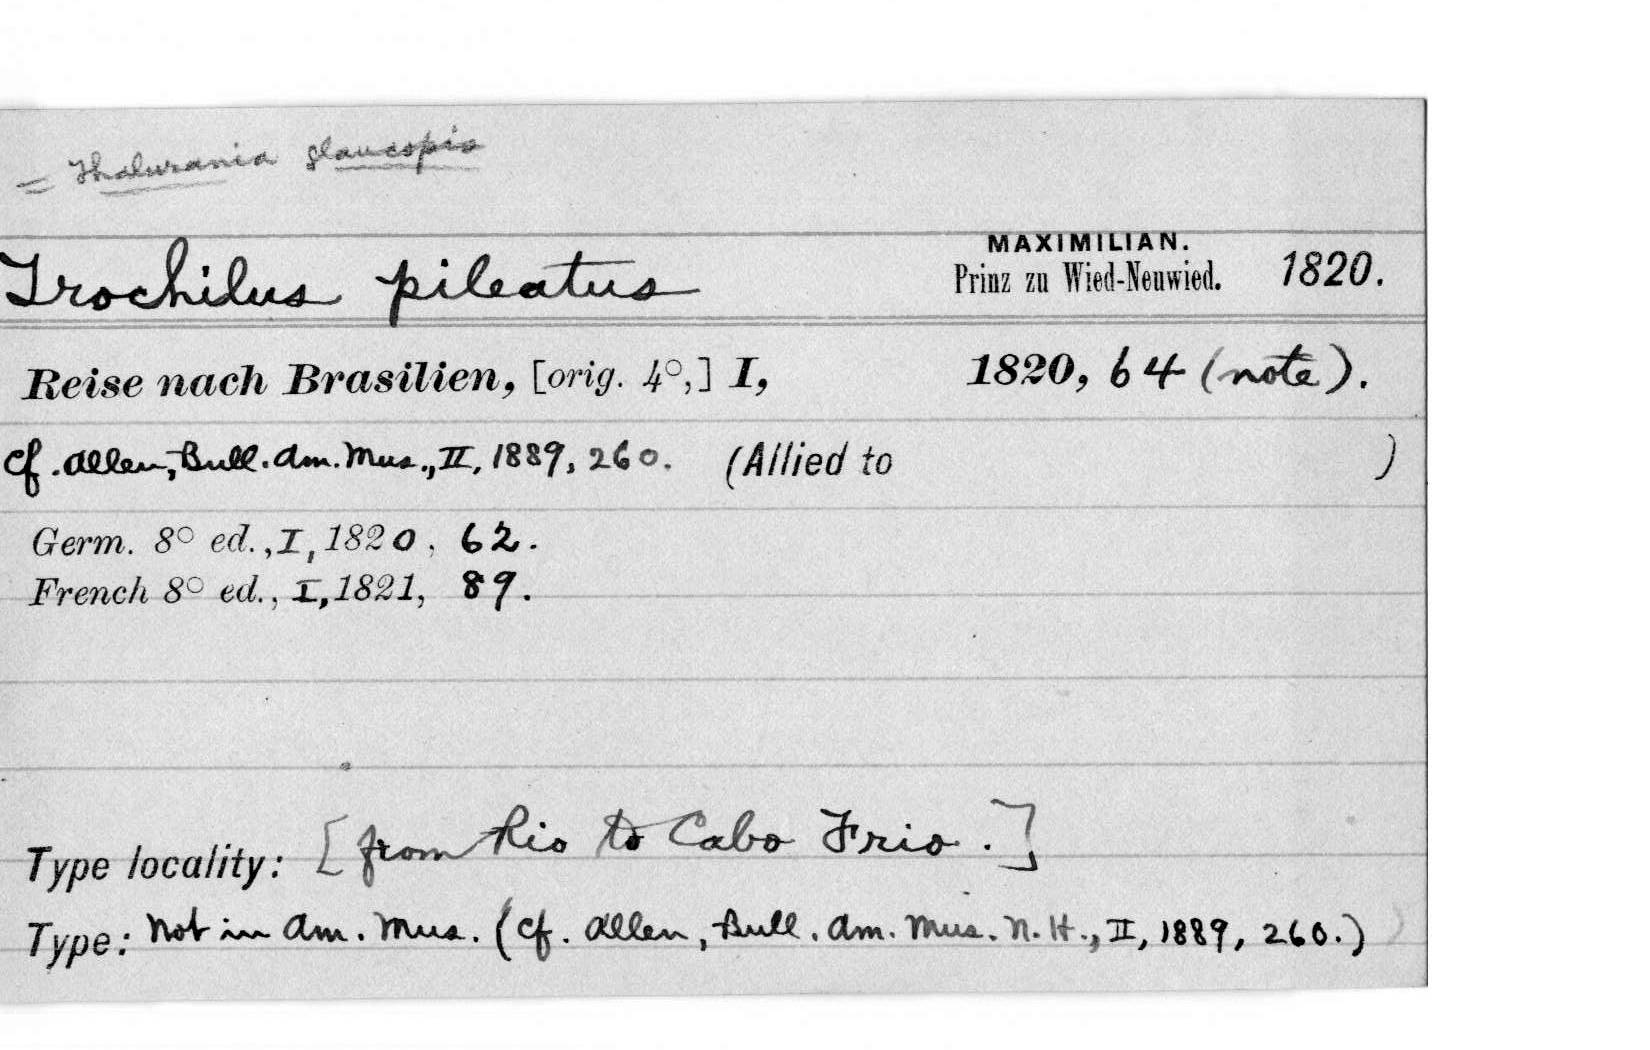 = Thalurania glaucopis
Trochilus pileatus MAXIMILIAN. Prinz zu Wied-Neuwied. 1820.
Reise nach Brasilien, [orig. 4°,] I, 1820, 64 (note).
cf. Allen, Bull. Am. Mus., II, 1889, 260. (Allied to )
Germ. 8° ed., I, 1820, 62.
French 8° ed., I, 1821, 89.
Type locality: [from Rio to Cabo Frio.]
Type: Not in Am. Mus. (cf. Allen, Bull. Am. Mus. N. H., II, 1889, 260.)